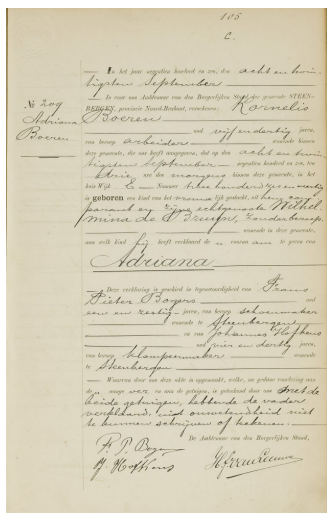 105
C.
No 209
Adriana
Boeren
In het jaar negentien honderd en een, den acht en twin-
tigsten September
is voor ons Ambtenaar van den Burgerlijken Stand der gemeente STEEN-
BERGEN, provincie Noord-Brabant, verschenen: Kornelis
Boeren
oud vijf en dertig jaren,
van beroep arbeider wonende binnen
deze gemeente, die ons heeft aangegeven, dat op den acht en twin-
tigsten September negentien honderd en een ten
drie ure des morgens binnen deze gemeente, in het
huis Wijk E Nummer twee honderd
is geboren een kind van het vrouwelijk geslacht, uit hem com-
parant en zijne echtgenoote Wilhel-
mina de Bruijn, zonder beroep,
wonende in deze gemeente,
aan welk kind hij heeft verklaard de voornaam te geven van
Adriana
Deze verklaring is geschied in tegenwoordigheid van Frans
Pieter Bogers oud
een en zestig jaren, van beroep schoenmaker
wonende te Steenbergen
en van Johannes Hofhens
oud vier en dertig jaren,
van beroep klompenmaker wonende
te Steenbergen
Waarvan door ons deze akte is opgemaakt, welke, na gedane voorlezing aan
de en aan de getuigen, is geteekend door ons met de
beide getuigen, hebbende de vader
verklaard, uit onwetendheid niet
te kunnen schrijven of teekenen.
De Ambtenaar van den Burgerlijken Stand,
F. P. Bogers
J. Hofhens